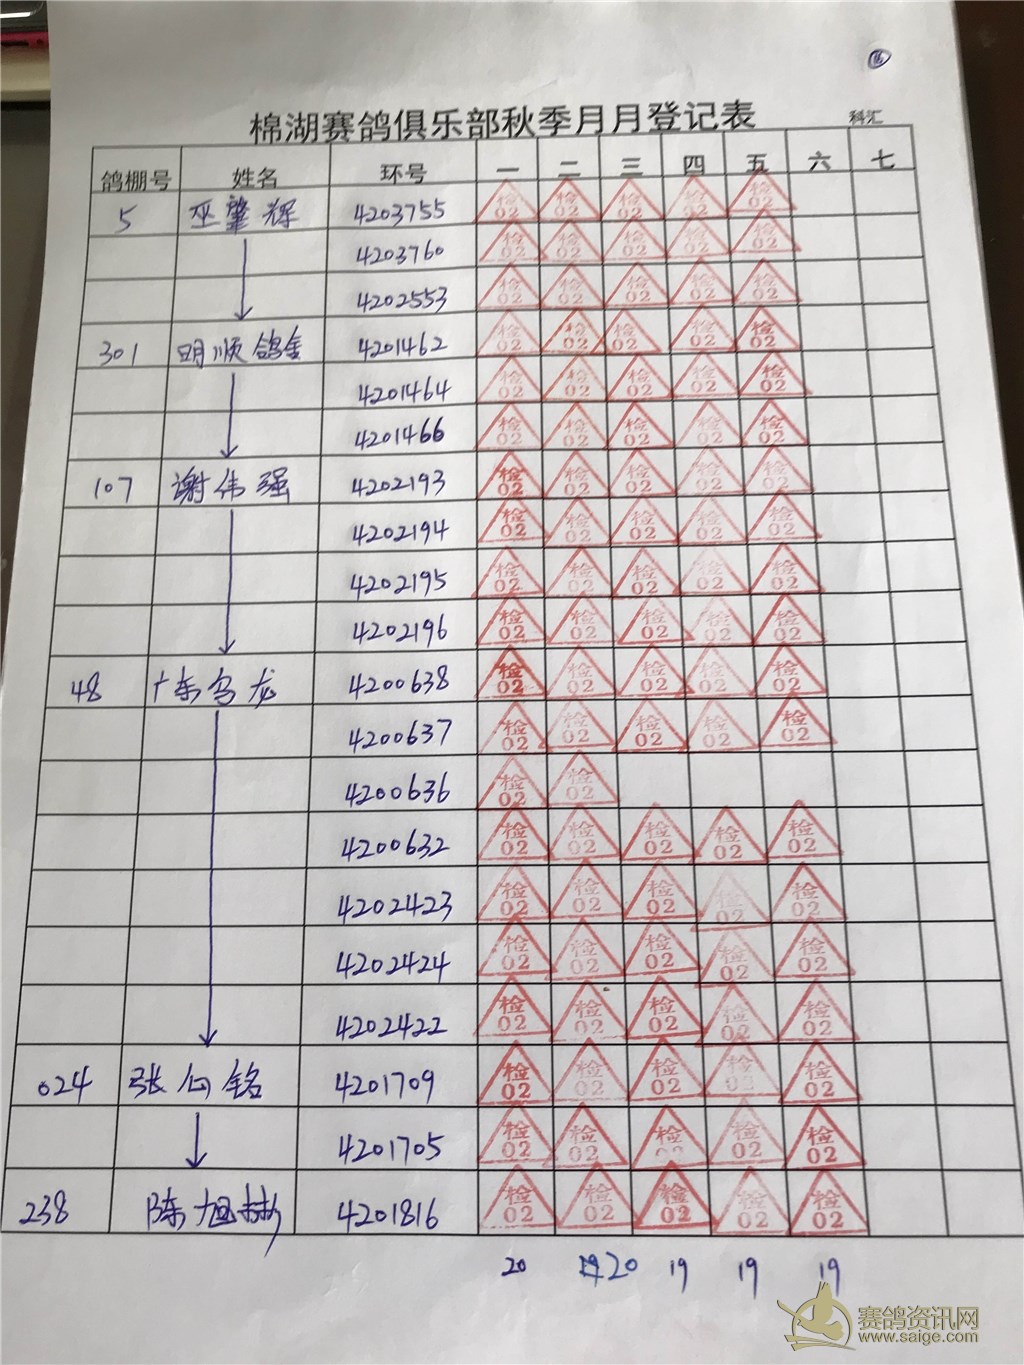 ⑯
棉湖赛鸽俱乐部秋季月月登记表 科汇
鸽棚号 姓名 环号 一 二 三 四 五 六 七
5 巫肇辉 4203755 检02 检02 检02 检02 检02
4203760 检02 检02 检02 检02 检02
4202553 检02 检02 检02 检02 检02
301 明顺鸽舍 4201462 检02 检02 检02 检02 检02
4201464 检02 检02 检02 检02 检02
4201466 检02 检02 检02 检02 检02
107 谢伟强 4202193 检02 检02 检02 检02 检02
4202194 检02 检02 检02 检02 检02
4202195 检02 检02 检02 检02 检02
4202196 检02 检02 检02 检02 检02
48 广东乌龙 4200638 检02 检02 检02 检02 检02
4200637 检02 检02 检02 检02 检02
4200636 检02 检02
4200632 检02 检02 检02 检02 检02
4202423 检02 检02 检02 检02 检02
4202424 检02 检02 检02 检02 检02
4202422 检02 检02 检02 检02 检02
024 张 铭 4201709 检02 检02 检02 检02 检02
4201705 检02 检02 检02 检02 检02
238 陈旭彬 4201816 检02 检02 检02 检02 检02
20 20 19 19 19
赛鸽资讯网
www.saige.com